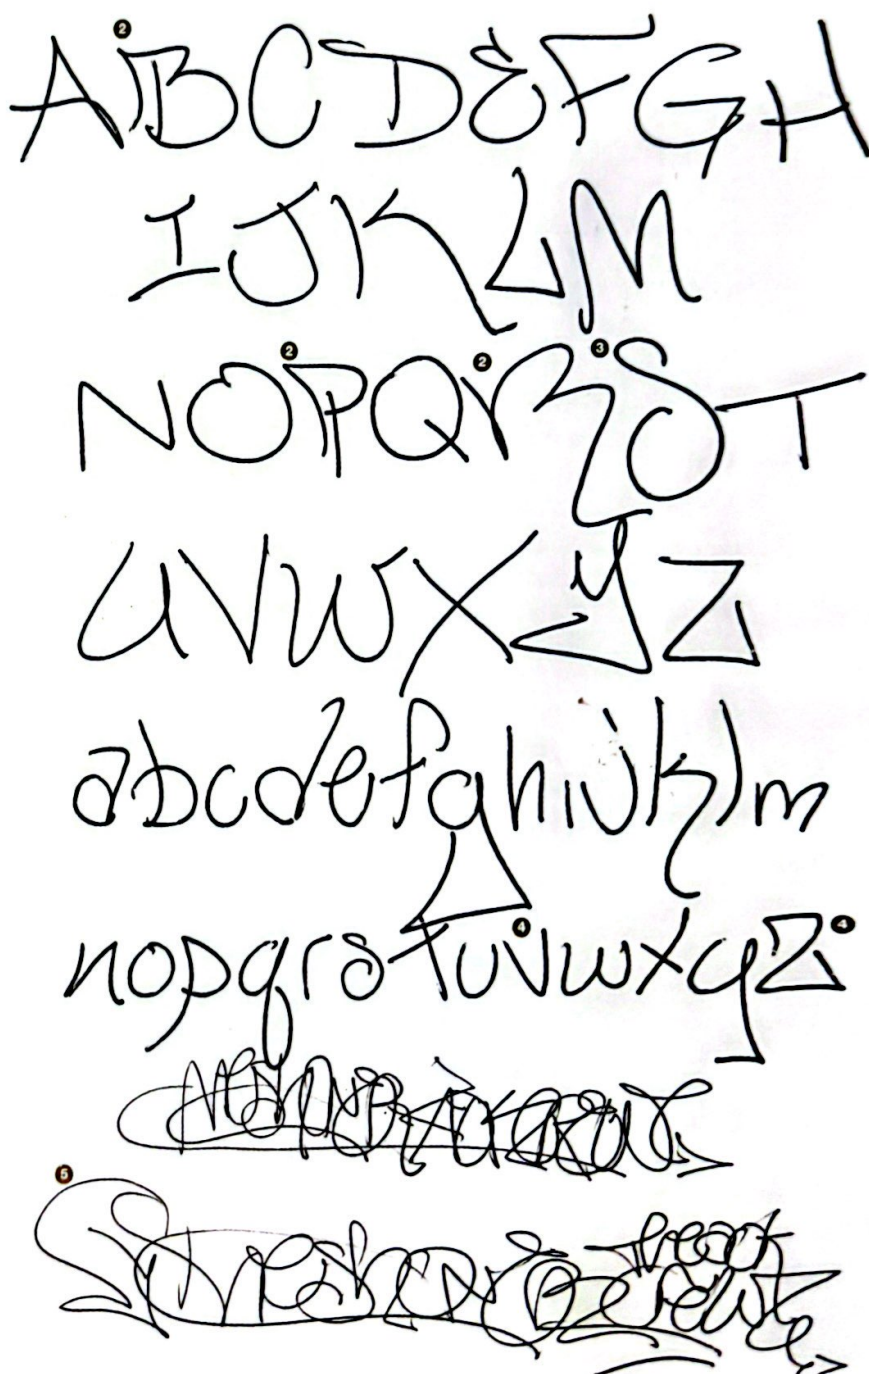 ❷ ABCDEFGH
IJKLM
❷ ❷ ❸ NOPQRST
UVWXYZ
abcdefghijklm
nopqrstuvwxyz ❹ ❹
❺